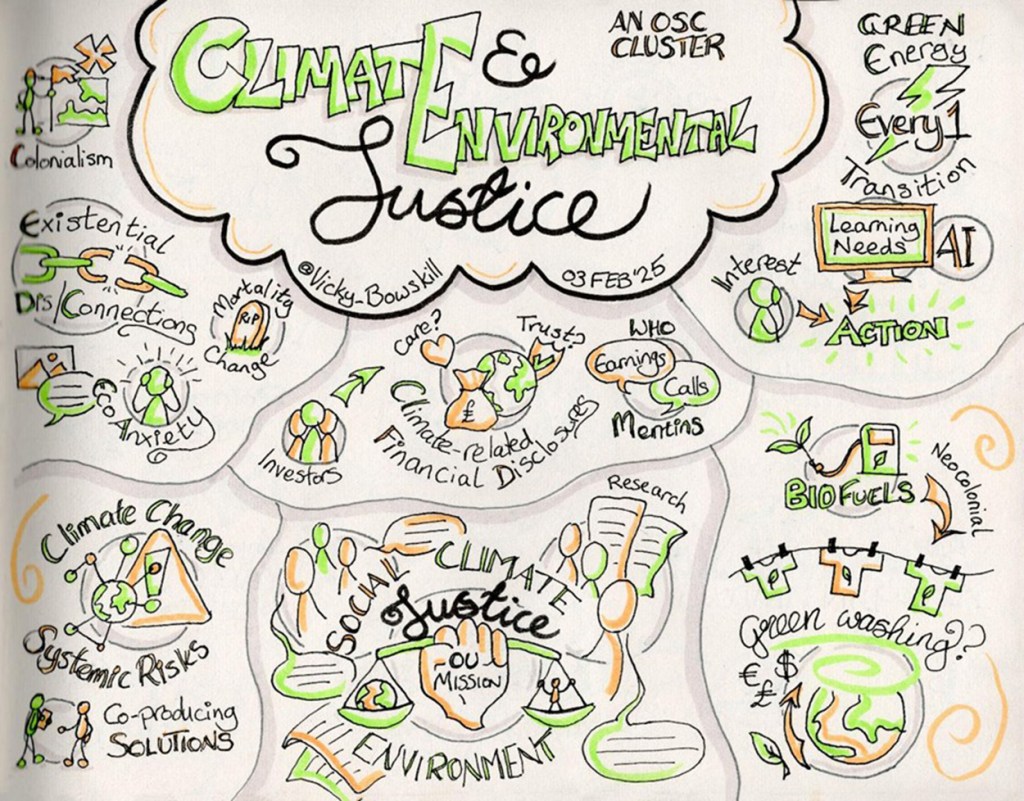 CLIMATE &
ENVIRONMENTAL
Justice
AN OSC
CLUSTER
@Vicky-Bowskill
03 FEB '25
Colonialism
Existential
Dis/Connections
Mortality
RIP
Change
Eco Anxiety
GREEN
Energy
Every1
Transition
Learning
Needs
AI
Interest
ACTION
Care?
Trust?
£
Climate-related
Financial Disclosures
Investors
WHO
Earnings
Calls
Mentins
Climate Change
!
Systemic Risks
Co-producing
SOLUTIONS
Research
SOCIAL
CLIMATE
Justice
OU
MISSION
ENVIRONMENT
BIOFUELS
Neocolonial
Green washing??
€ $
£